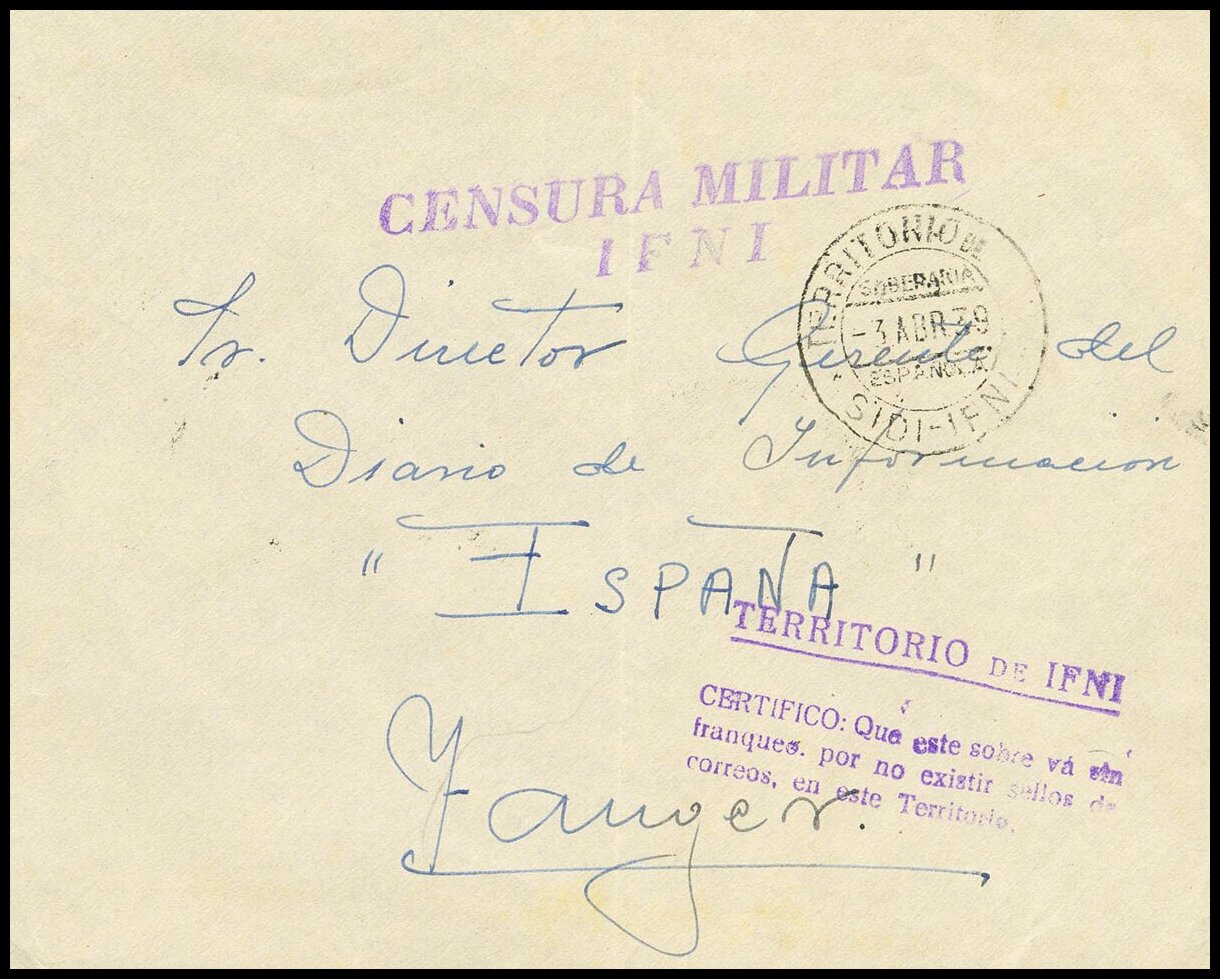 CENSURA MILITAR
IFNI
TERRITORIO DE
SOBERARIA
-3 ABR 39
ESPAÑOLA
SIDI-IFNI
Sr. Director Gerente del
Diario de Informacion
" ESPAÑA "
Tanger.
TERRITORIO DE IFNI
CERTIFICO: Que este sobre vá sin
franqueo. por no existir sellos de
correos, en este Territorio.